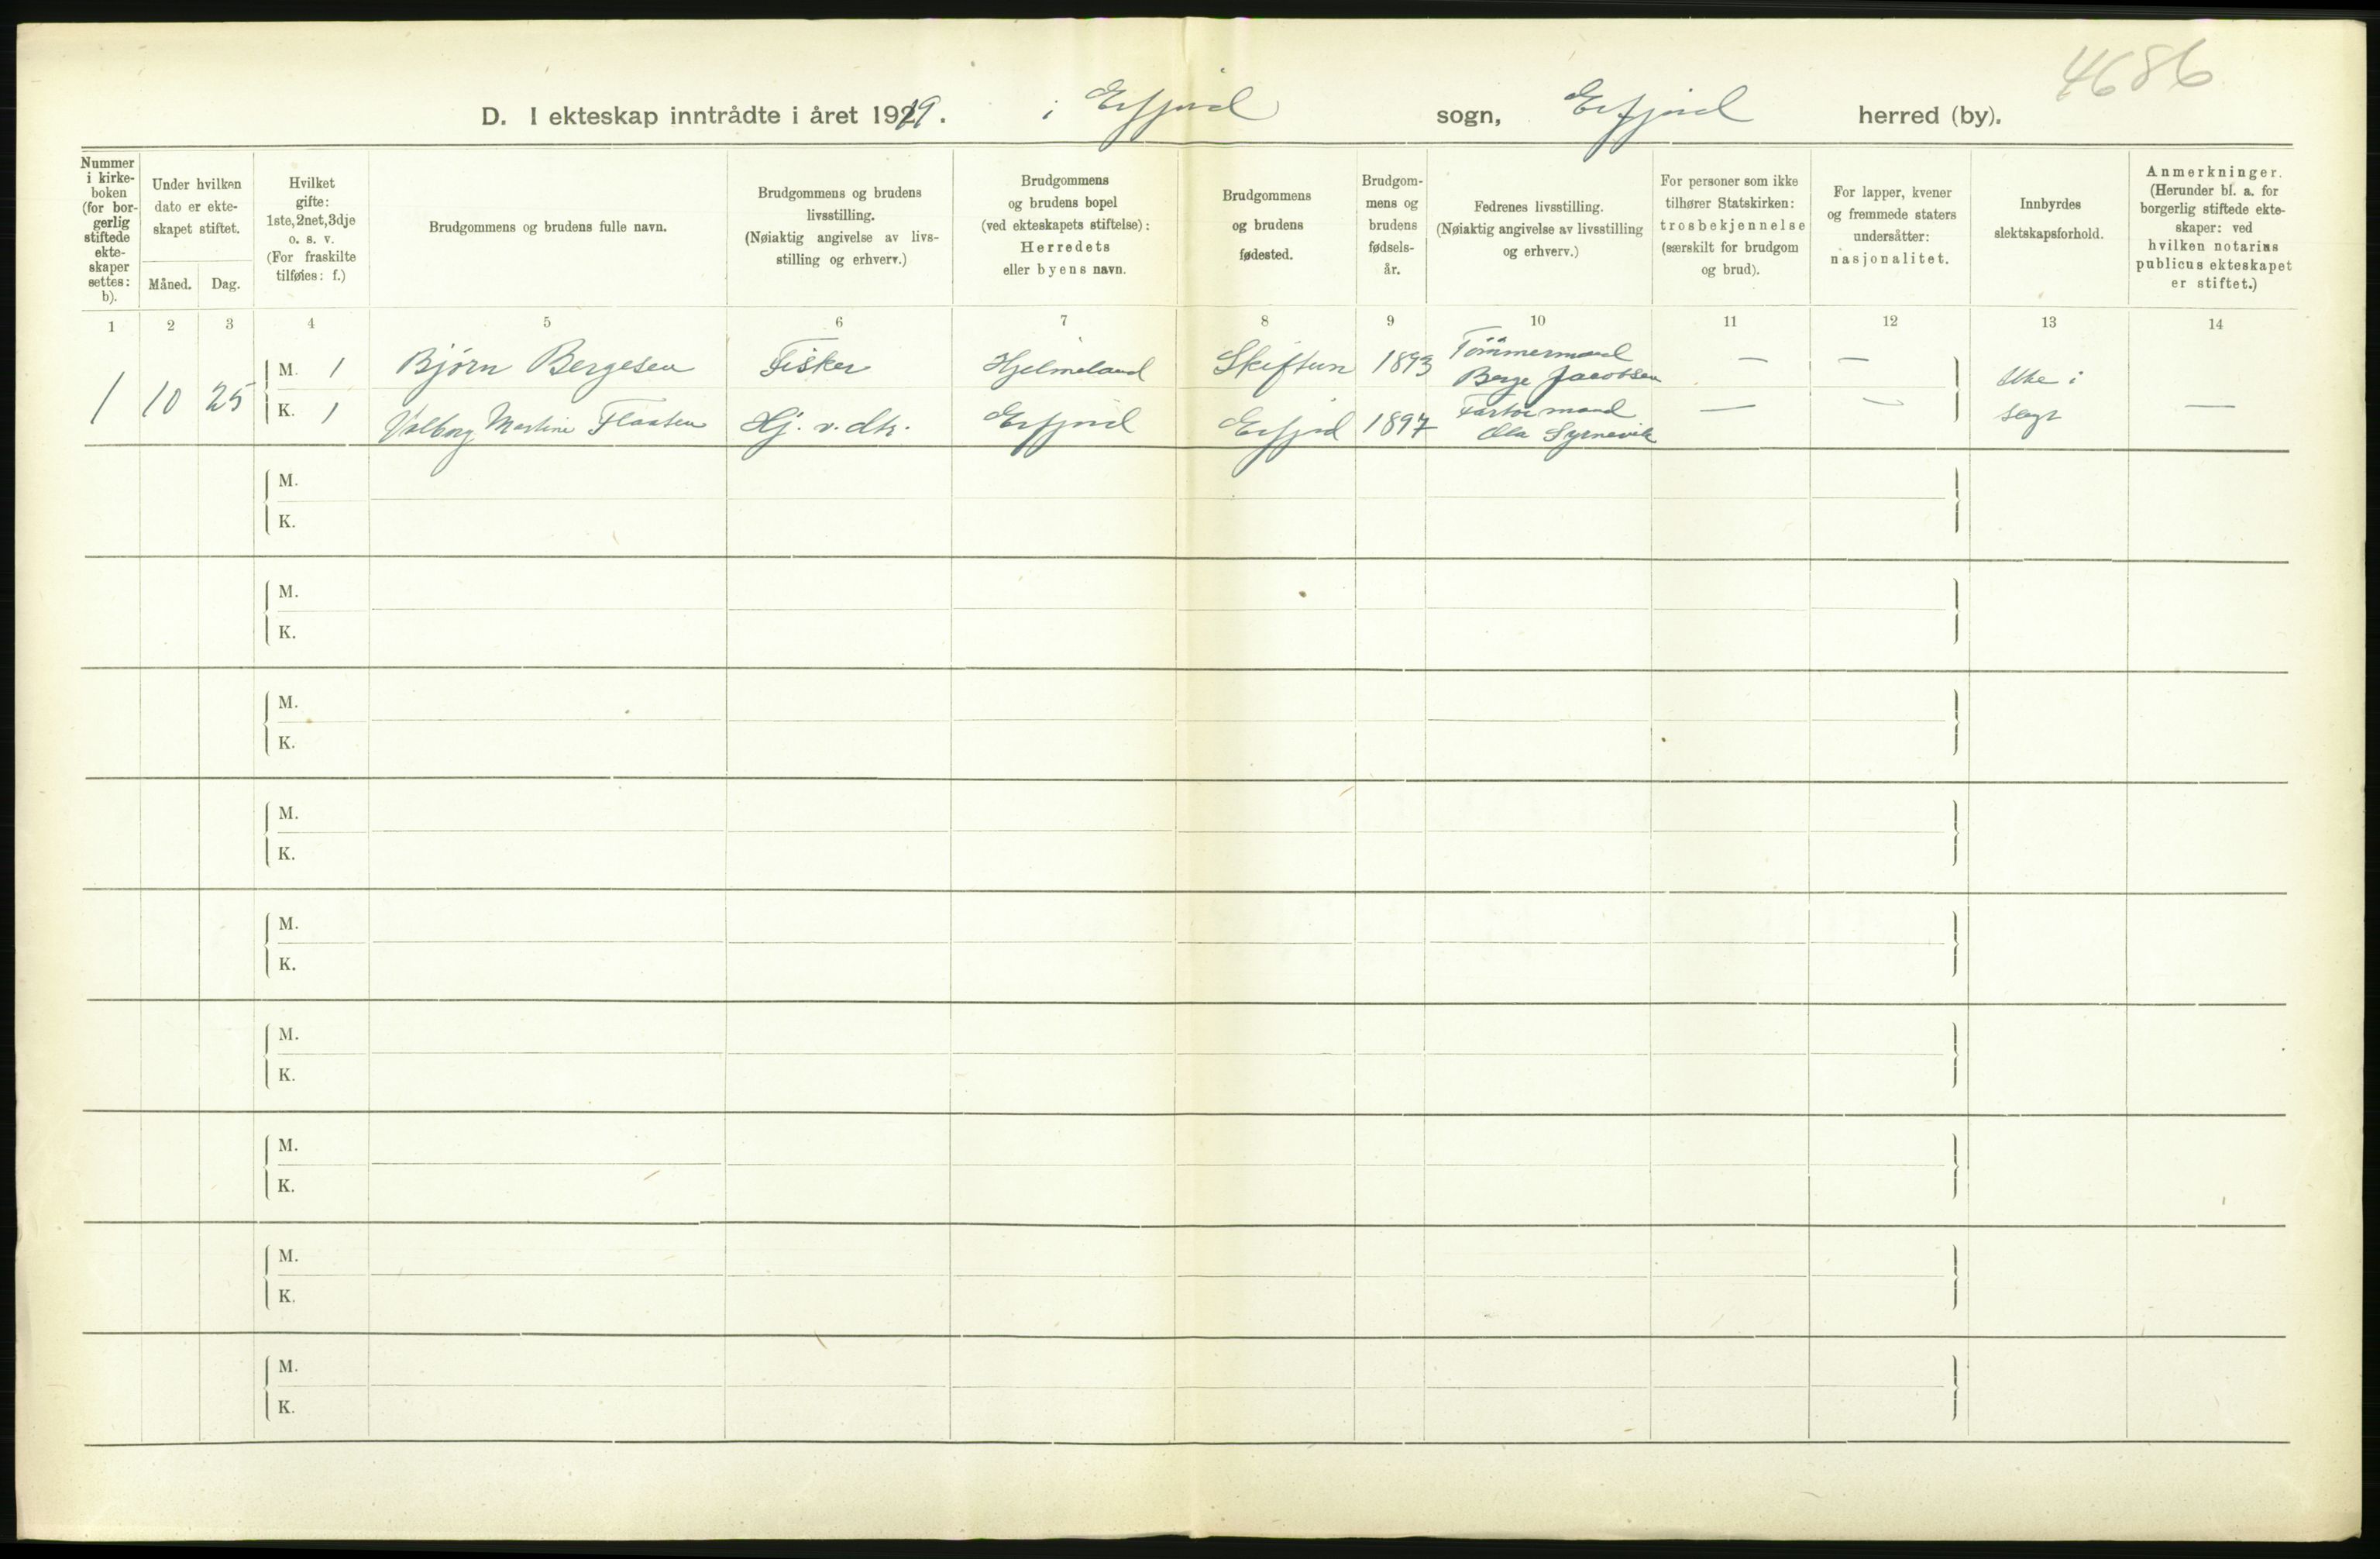 4686
D. I ekteskap inntrådte i året 1919. i Erfjord sogn, Erfjord herred (by).
Nummer i kirke-boken (for bor-gerlig stiftede ekte-skaper settes: b).
Under hvilken dato er ekte-skapet stiftet.
Måned. Dag.
Hvilket gifte: 1ste, 2net, 3dje o. s. v. (For fraskilte tilføies: f.)
Brudgommens og brudens fulle navn.
Brudgommens og brudens livsstilling. (Nøiaktig angivelse av livs-stilling og erhverv.)
Brudgommens og brudens bopel (ved ekteskapets stiftelse): Herredets eller byens navn.
Brudgommens og brudens fødested.
Brudgom-mens og brudens fødsels-år.
Fedrenes livsstilling. (Nøiaktig angivelse av livsstilling og erhverv.)
For personer som ikke tilhører Statskirken: trosbekjennelse (særskilt for brudgom og brud).
For lapper, kvener og fremmede staters undersåtter: nasjonalitet.
Innbyrdes slektskapsforhold.
Anmerkninger. (Herunder bl. a. for borgerlig stiftede ekte-skaper: ved hvilken notarius publicus ekteskapet er stiftet.)
1 2 3 4 5 6 7 8 9 10 11 12 13 14
1 10 25
M. 1 Bjørn Bergesen Fisker Hjelmeland Skiftun 1893 Tömmermand Berge Jacobsen — — Ikke i
K. 1 Valborg Martine Flaaten Hj. v. dtr. Erfjord Erfjord 1897 mand Ola — — slegt —
M.
K.
M.
K.
M.
K.
M.
K.
M.
K.
M.
K.
M.
K.
M.
K.
M.
K.